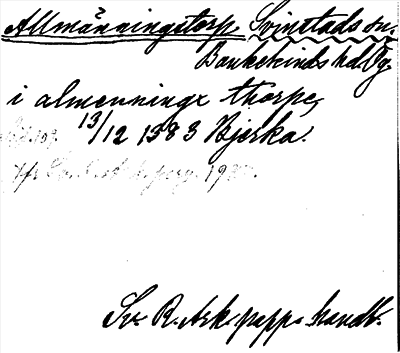 Allmänningstorp, Svinstads sn.
Bankekinds hd Ög.
i almenningx thorpe,
13/12 1383 Bjerka.
Sv. R. Ark. papp. handl.